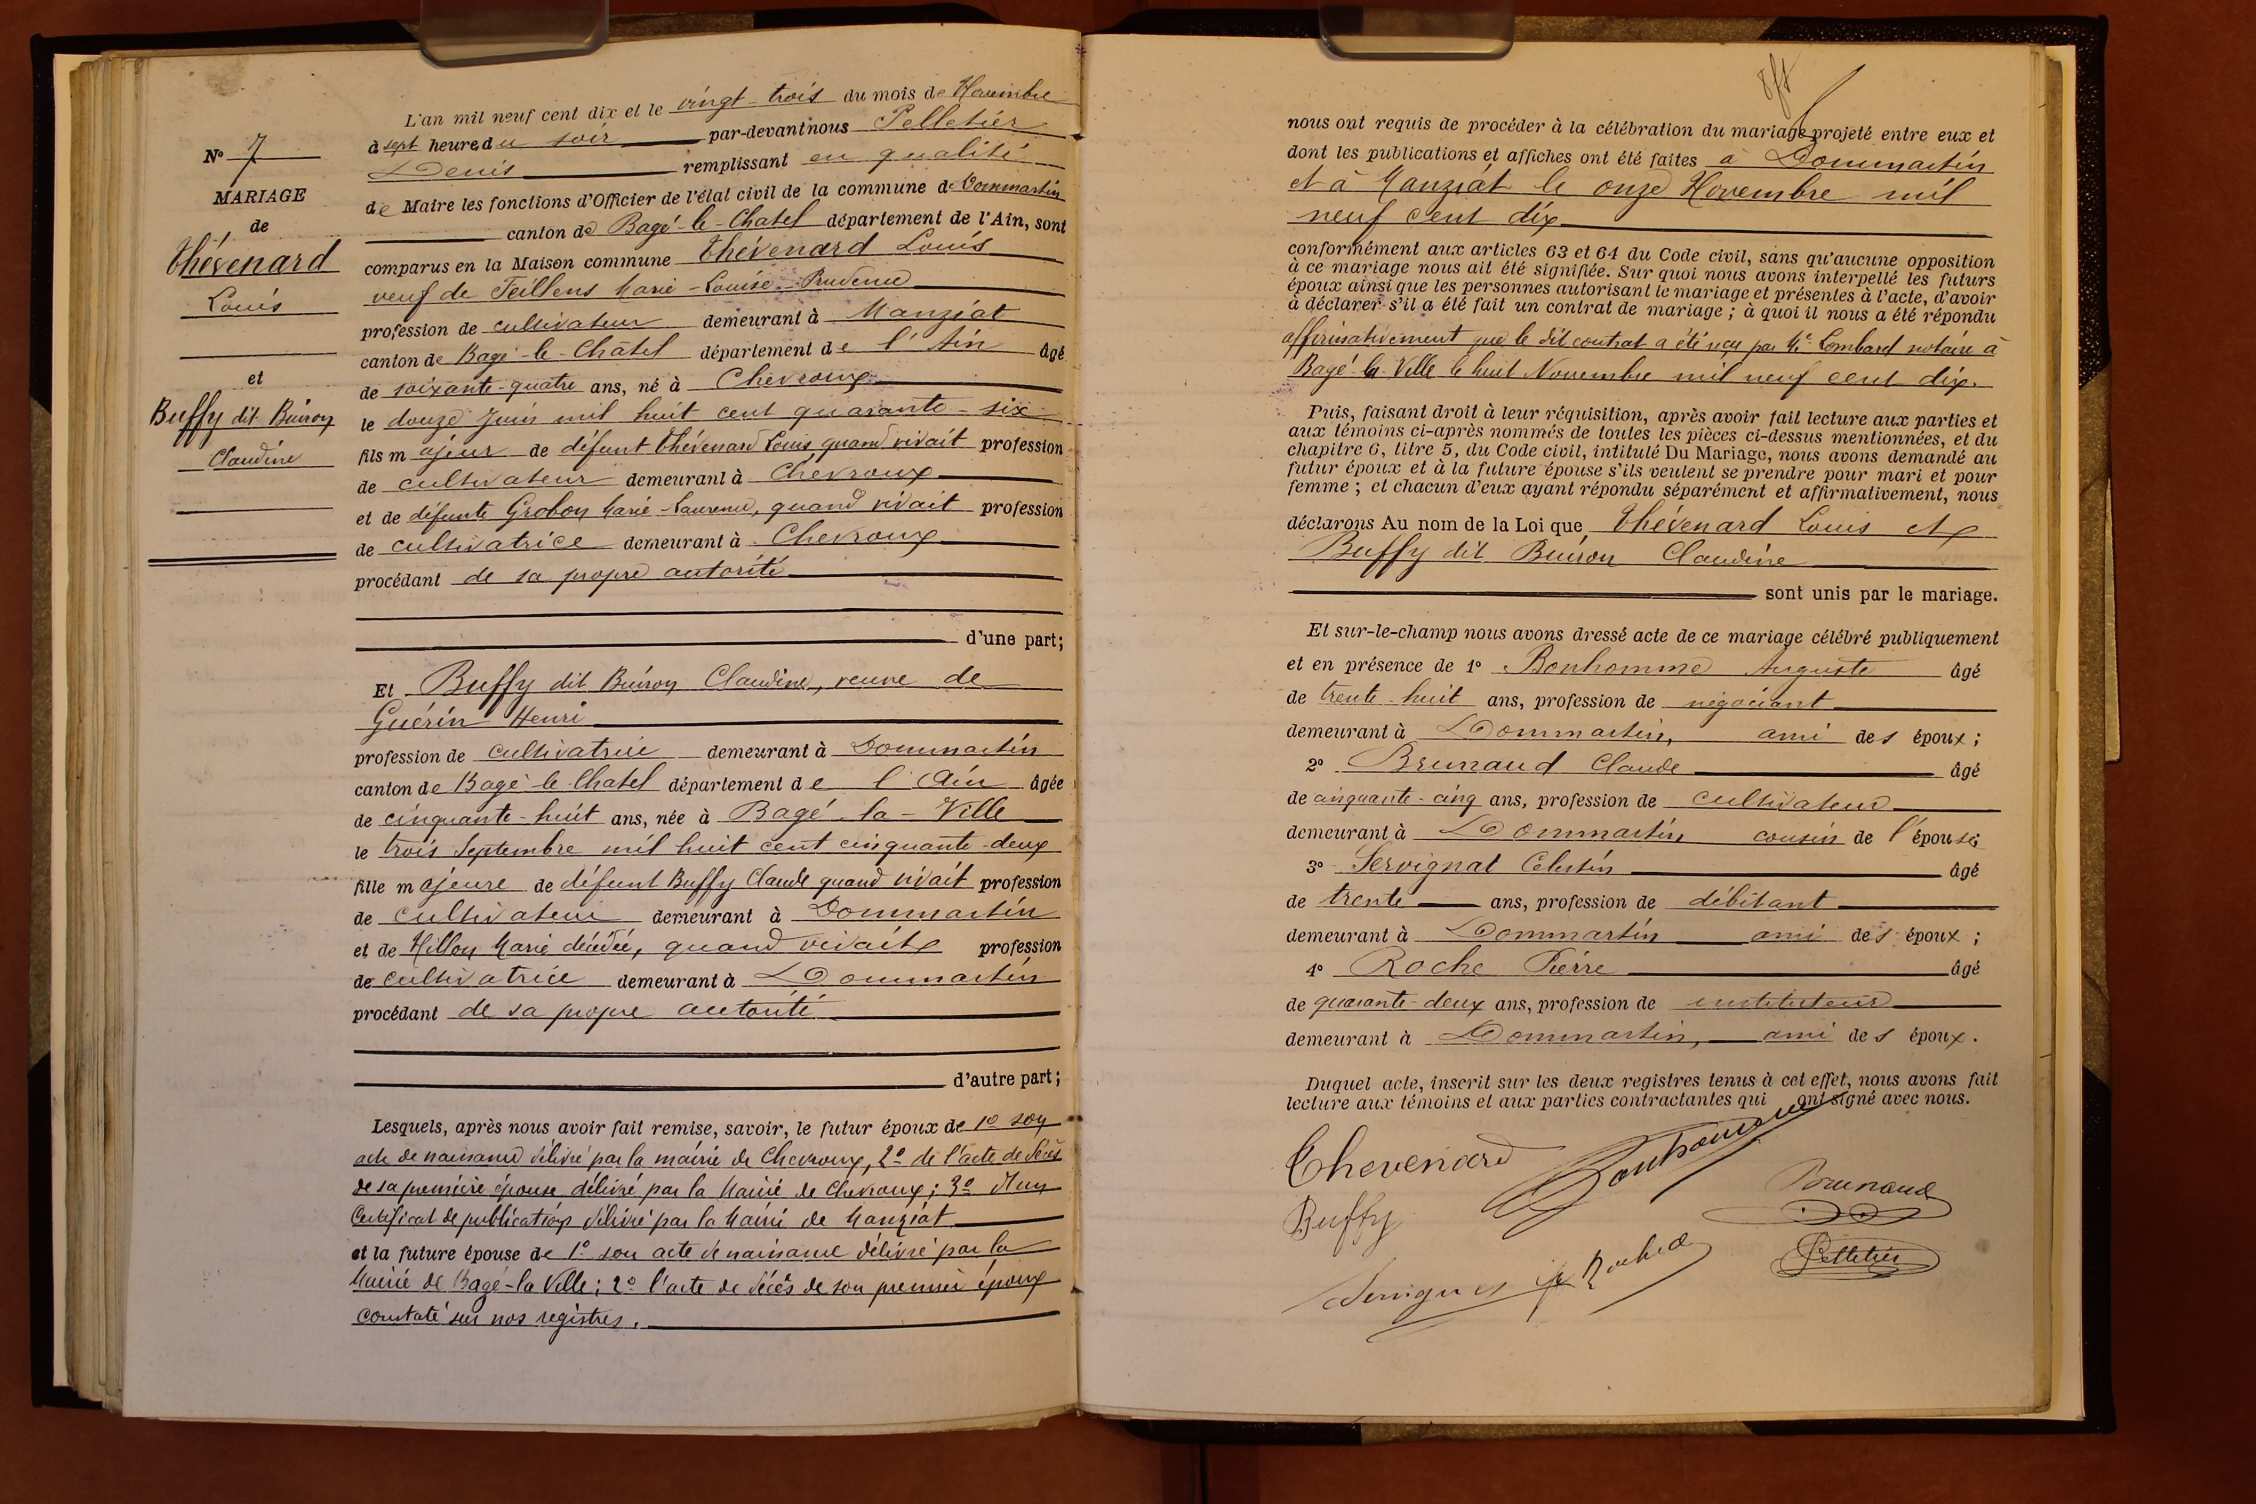 N° 7
MARIAGE
de
Thévenard
Louis
et
Buffy dit Buiron
Claudine
L'an mil neuf cent dix et le vingt-trois du mois de Novembre
à sept heure du soir par-devant nous Pelletier
Denis remplissant en qualité
de Maire les fonctions d'Officier de l'état civil de la commune de Dommartin
canton de Bagé-le-Chatel département de l'Ain, sont
comparus en la Maison commune Thévenard Louis
veuf de Feillens Marie-Louise-Prudence
profession de cultivateur demeurant à Manziat
canton de Bagé-le-Châtel département de l'Ain âgé
de soixante-quatre ans, né à Chevroux
le douze Juin mil huit cent quarante-six
fils majeur de défunt Thévenard Louis quand vivait profession
de cultivateur demeurant à Chevroux
et de défunte Grobon Marie-Laurence, quand vivait profession
de cultivatrice demeurant à Chevroux
procédant de sa propre autorité
d'une part;
Et Buffy dit Buiron Claudine, veuve de
Guérin Henri
profession de cultivatrice demeurant à Dommartin
canton de Bagé-le-Chatel département de l'Ain âgée
de cinquante-huit ans, née à Bagé-la-Ville
le trois Septembre mil huit cent cinquante-deux
fille majeure de défunt Buffy Claude quand vivait profession
de cultivateur demeurant à Dommartin
et de Hillon Marie décédée, quand vivait profession
de cultivatrice demeurant à Dommartin
procédant de sa propre autorité
d'autre part;
Lesquels, après nous avoir fait remise, savoir, le futur époux de 1° son
acte de naissance délivré par la mairie de Chevroux, 2° de l'acte de décès
de sa première épouse délivré par la Mairie de Chevroux; 3° d'un
Certificat de publication délivré par la Mairie de Manziat
et la future épouse de 1° son acte de naissance délivré par la
Mairie de Bagé-la Ville; 2° l'acte de décès de son premier époux
constaté sur nos registres.
nous ont requis de procéder à la célébration du mariage projeté entre eux et
dont les publications et affiches ont été faites à Dommartin
et à Manziat le onze Novembre mil
neuf cent dix
conformément aux articles 63 et 64 du Code civil, sans qu'aucune opposition
à ce mariage nous ait été signifiée. Sur quoi nous avons interpellé les futurs
époux ainsi que les personnes autorisant le mariage et présentes à l'acte, d'avoir
à déclarer s'il a été fait un contrat de mariage; à quoi il nous a été répondu
affirmativement que le dit contrat a été reçu par Me Lombard notaire à
Bagé-la Ville le huit Novembre mil neuf cent dix.
Puis, faisant droit à leur réquisition, après avoir fait lecture aux parties et
aux témoins ci-après nommés de toutes les pièces ci-dessus mentionnées, et du
chapitre 6, titre 5, du Code civil, intitulé Du Mariage, nous avons demandé au
futur époux et à la future épouse s'ils veulent se prendre pour mari et pour
femme; et chacun d'eux ayant répondu séparément et affirmativement, nous
déclarons Au nom de la Loi que Thévenard Louis et
Buffy dit Buiron Claudine
sont unis par le mariage.
Et sur-le-champ nous avons dressé acte de ce mariage célébré publiquement
et en présence de 1° Bonhomme Auguste âgé
de trente-huit ans, profession de négociant
demeurant à Dommartin, ami des époux;
2° Brunaud Claude âgé
de cinquante-cinq ans, profession de cultivateur
demeurant à Dommartin cousin de l'épouse;
3° Servignat Célestin âgé
de trente ans, profession de débitant
demeurant à Dommartin ami des époux;
4° Roche Pierre âgé
de quarante-deux ans, profession de instituteur
demeurant à Dommartin, ami des époux.
Duquel acte, inscrit sur les deux registres tenus à cet effet, nous avons fait
lecture aux témoins et aux parties contractantes qui ont signé avec nous.
Thevenard Bonhomme
Buffy Brunaud
Servignat Roche Pelletier